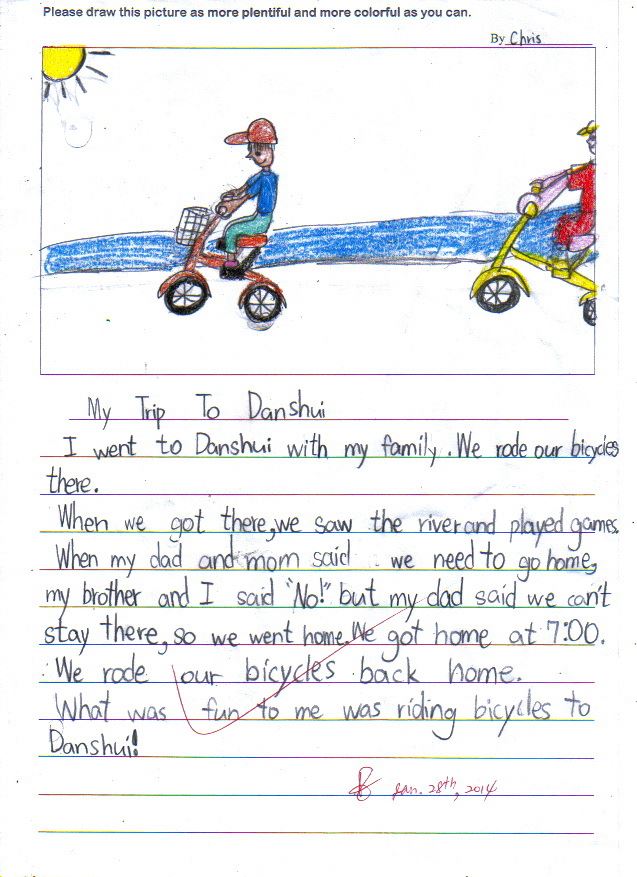 Please draw this picture as more plentiful and more colorful as you can.
By Chris
My Trip To Danshui
I went to Danshui with my family. We rode our bicycles
there.
When we got there, we saw the river and played games.
When my dad and mom said we need to go home,
my brother and I said "No!" but my dad said we can't
stay there, so we went home. We got home at 7:00.
We rode our bicycles back home.
What was fun to me was riding bicycles to
Danshui!
Jan. 28th, 2014